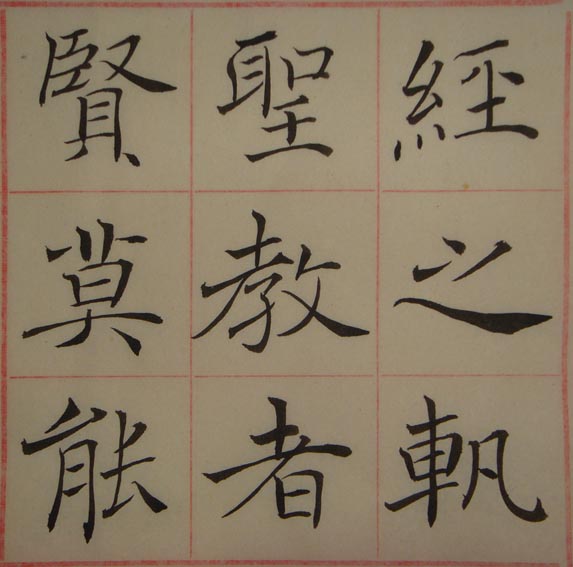 經之軌
聖教者
賢莫能